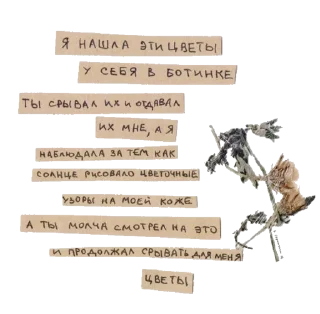 Я НАШЛА ЭТИ ЦВЕТЫ
У СЕБЯ В БОТИНКЕ
ТЫ СРЫВАЛ ИХ И ОТДАВАЛ
ИХ МНЕ, А Я
НАБЛЮДАЛА ЗА ТЕМ КАК
СОЛНЦЕ РИСОВАЛО ЦВЕТОЧНЫЕ
УЗОРЫ НА МОЕЙ КОЖЕ
А ТЫ МОЛЧА СМОТРЕЛ НА ЭТО
И ПРОДОЛЖАЛ СРЫВАТЬ ДЛЯ МЕНЯ
ЦВЕТЫ